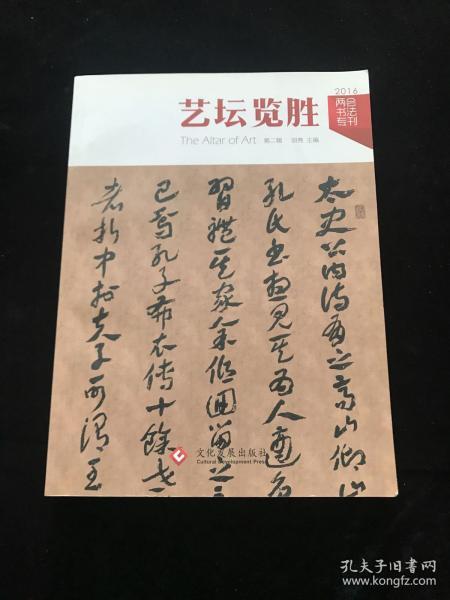 艺坛览胜
The Altar of Art 第二辑 胡秀 主编
2016
两会
书法
专刊
太史公曰詩有之高山仰止
孔氏書想見其為人適魯
習禮其家余低回留之不
已焉孔子布衣傳十餘世
者折中於夫子可謂至
文化发展出版社
Cultural Development Press
孔夫子旧书网
www.kongfz.com